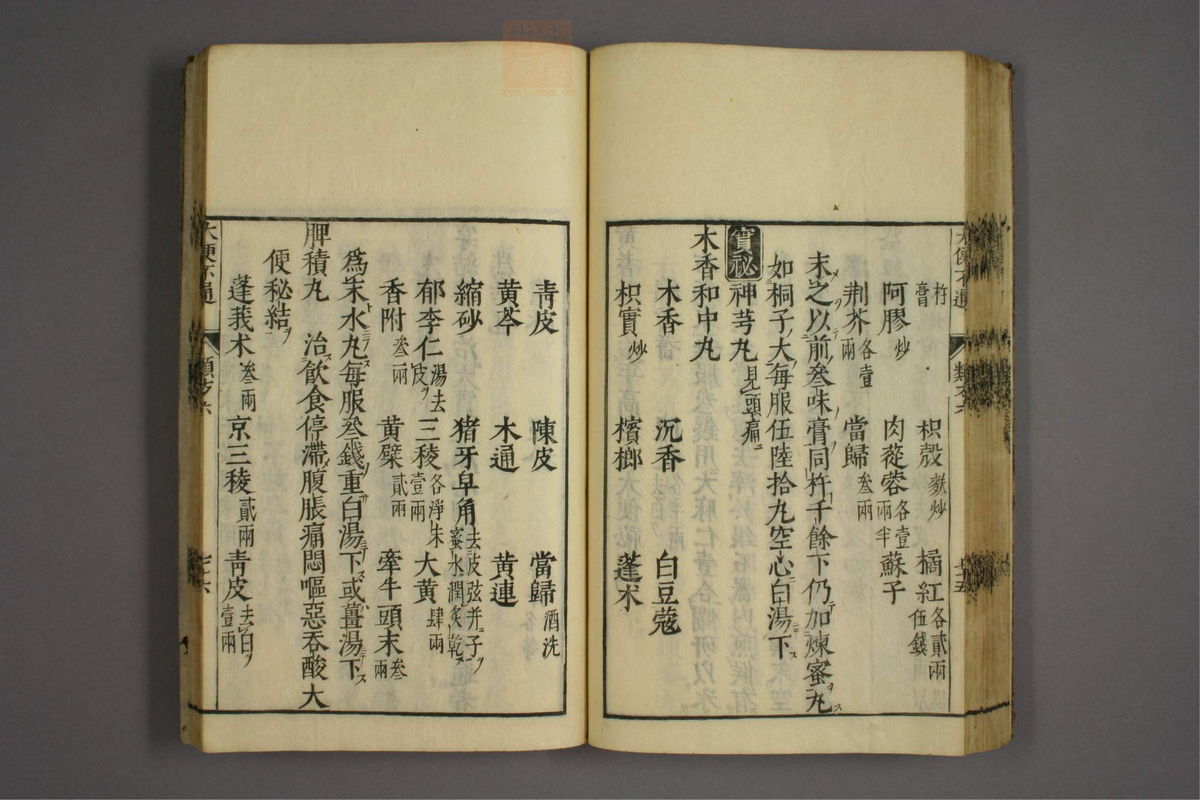 杵膏　枳殼麩炒　橘紅各貳兩伍錢
阿膠炒　肉蓯蓉各壹兩半　蘇子
荆芥各壹兩　當歸叁兩
末之以前叁味膏同杵千餘下仍加煉蜜丸
如桐子大每服伍陸拾丸空心白湯下
實祕　神芎丸見頭痛
木香和中丸
木香　沉香　白豆蔻
枳實炒　檳榔　蓬朮
青皮　陳皮　當歸酒洗
黄芩　木通　黄連
縮砂　猪牙皁角去皮弦并子蜜水潤炙乾
郁李仁湯去皮　三稜各淨末壹兩　大黄肆兩
香附叁兩　黄檗貳兩　牽牛頭末叁兩
爲末水丸每服叁錢重白湯下或薑湯下
脾積丸　治飲食停滯腹脹痛悶嘔惡吞酸大
便秘結
蓬莪朮叁兩　京三稜貳兩　青皮去白壹兩
大便不通　類方六　七十六